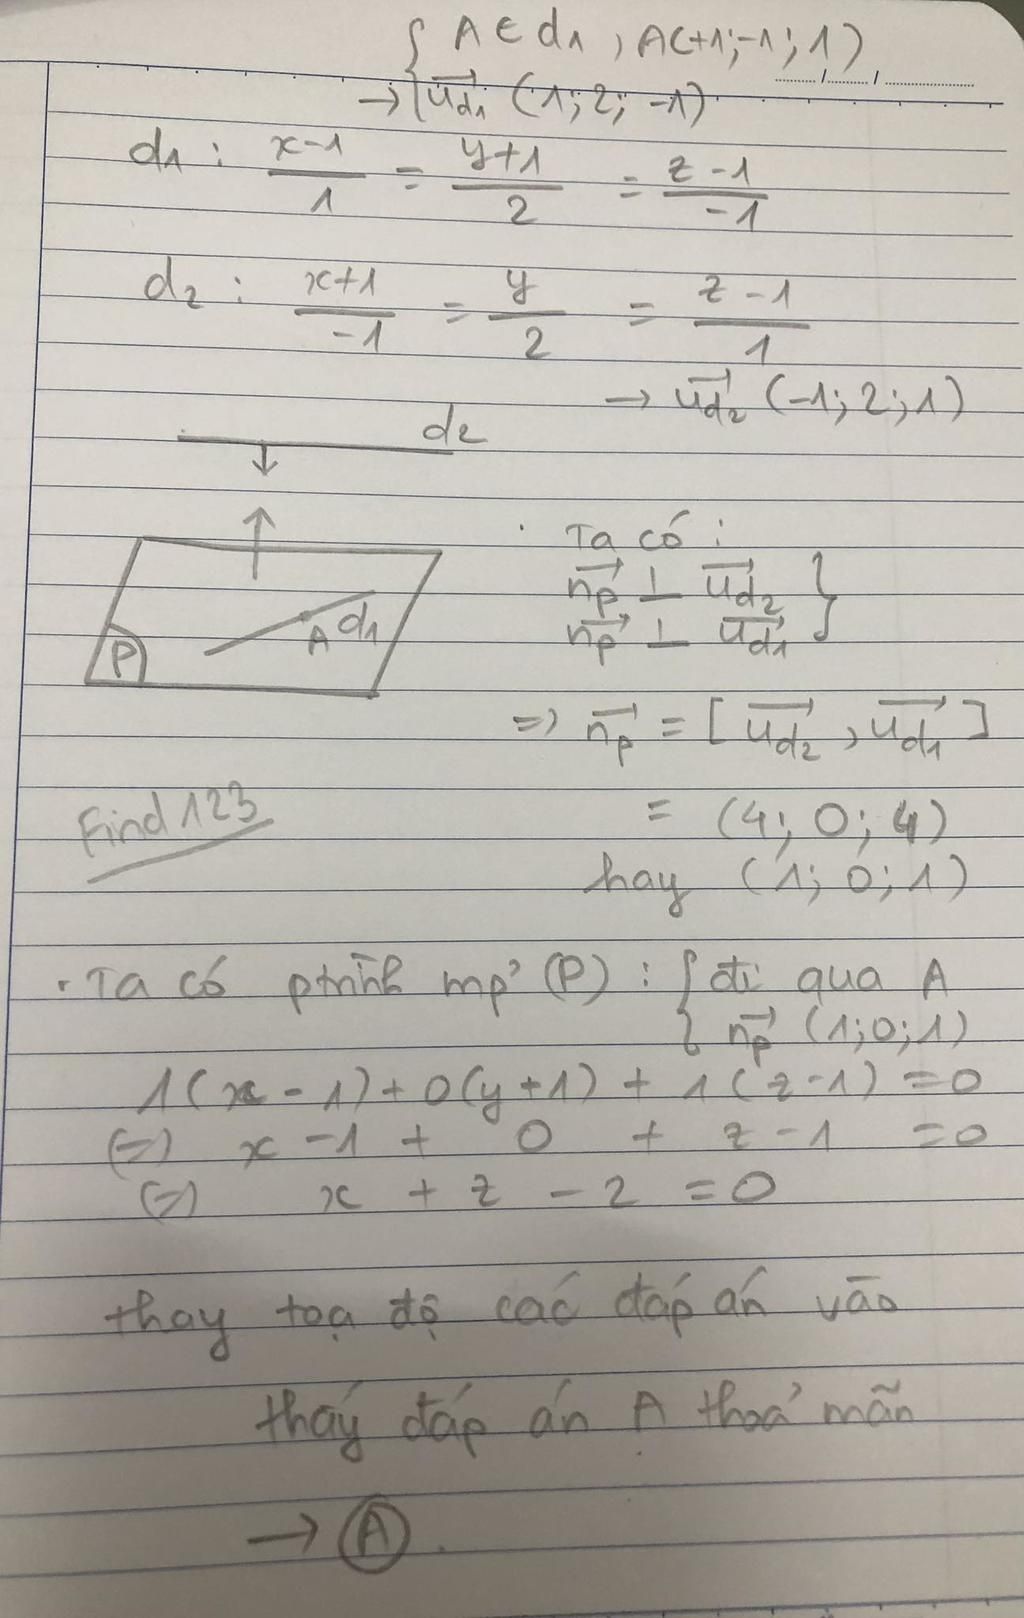 { A ∈ d1 , A(+1;-1;1)
→ { u⃗d1 (1; 2; -1)
d1 : (x-1)/1 = (y+1)/2 = (z-1)/-1
d2 : (x+1)/-1 = y/2 = (z-1)/1
→ u⃗d2 (-1; 2; 1)
d2
Ta có :
n⃗p ⊥ u⃗d2 }
n⃗p ⊥ u⃗d1
A d1
P
=> n⃗p = [ u⃗d2 , u⃗d1 ]
Find123
= (4; 0; 4)
hay (1; 0; 1)
. Ta có ptrình mp' (P) : { đi qua A
{ n⃗p (1;0;1)
1(x - 1) + 0(y+1) + 1(z-1) = 0
(=) x - 1 + 0 + z - 1 = 0
(=) x + z - 2 = 0
thay toạ độ các đáp án vào
thấy đáp án A thoả mãn
→ A .